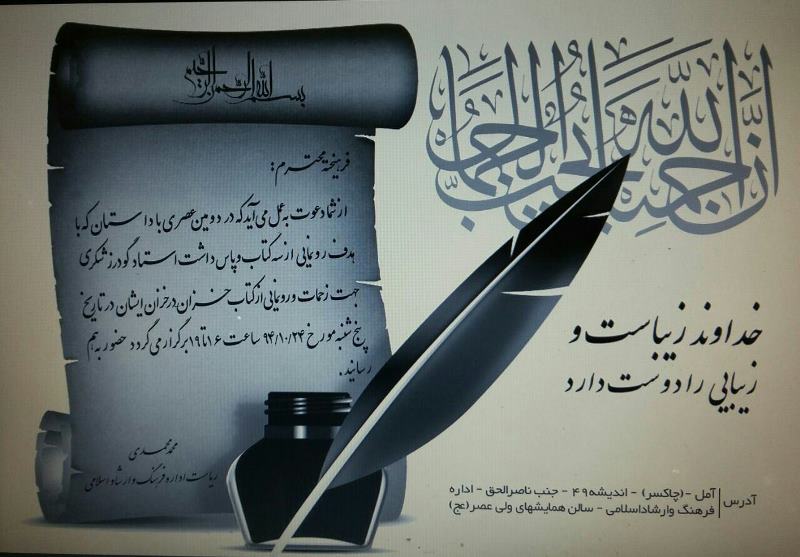 بسم الله الرحمن الرحیم
فرهیخته محترم:
از شما دعوت به عمل می آید که در دومین عصری با داستان که با
هدف رونمایی از سه کتاب و پاس داشت استاد گودرز شکری
جهت زحمات و رونمایی از کتاب خزان در خزان ایشان در تاریخ
پنج شنبه مورخ ۹۴/۱۰/۲۴ ساعت ۱۶ تا ۱۹ برگزار می گردد حضور به هم
رسانید.
محمد محمدی
ریاست اداره فرهنگ و ارشاد اسلامی
ان الله جمیل و یحب الجمال
خداوند زیباست و
زیبایی را دوست دارد
آدرس | آمل - (چاکسر) - اندیشه ۴۹ - جنب ناصرالحق - اداره
فرهنگ وارشاداسلامی - سالن همایشهای ولی عصر(عج)